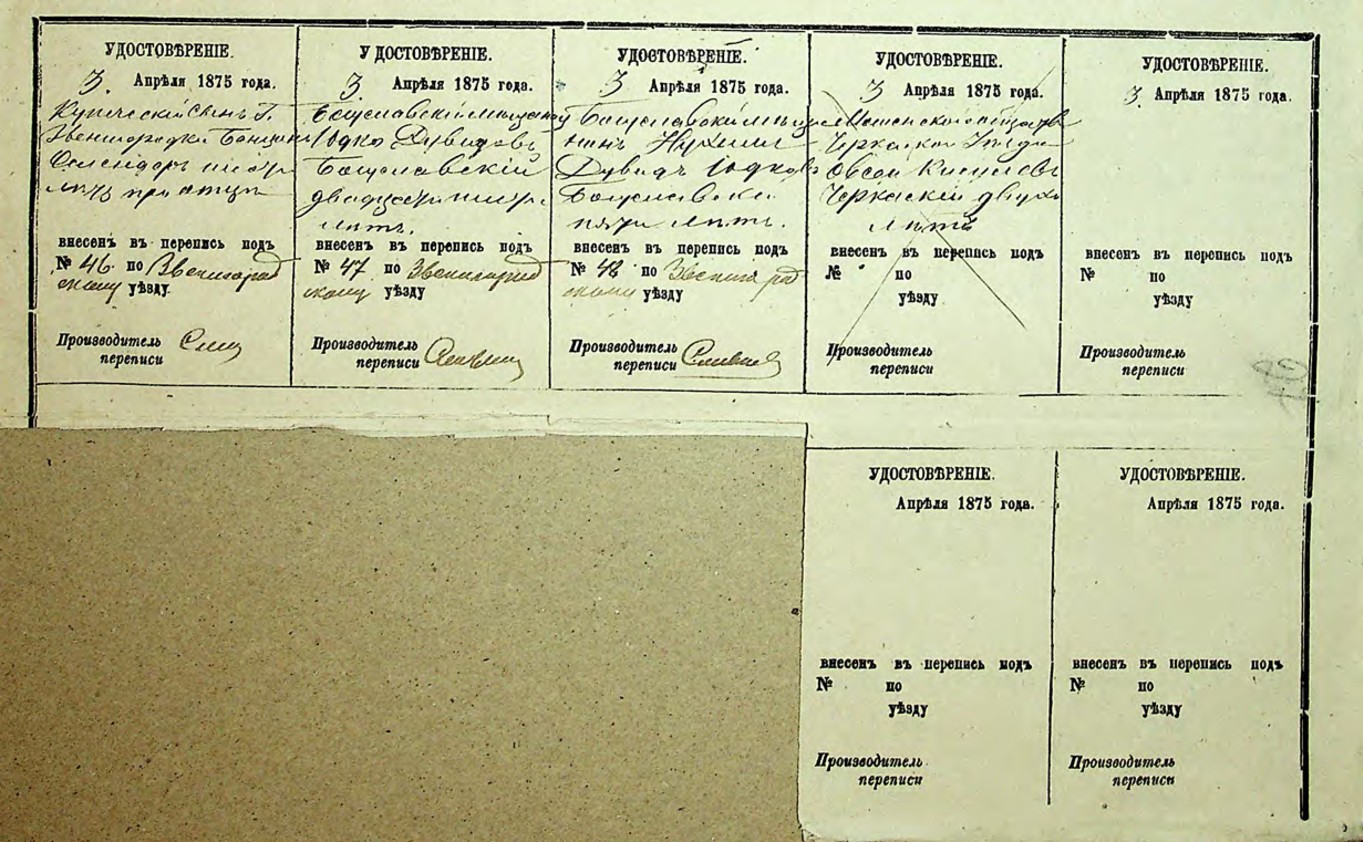 УДОСТОВѢРЕНІЕ.
3. Апрѣля 1875 года.
Купеческій сынъ г.
Звенигородки
при отцѣ
внесенъ въ перепись подъ
№ 46 по Звенигород
скому уѣзду
Производитель
переписи
УДОСТОВѢРЕНІЕ.
3. Апрѣля 1875 года.
Богуславскій
Іодко Дувидовъ
Богуславскій
лѣтъ.
внесенъ въ перепись подъ
№ 47 по Звенигород
скому уѣзду
Производитель
переписи
УДОСТОВѢРЕНІЕ.
3 Апрѣля 1875 года.
Богуславскій мѣща
нинъ Нухимъ
Дувидъ Іодковъ
Богуславскій
пяти лѣтъ.
внесенъ въ перепись подъ
№ 48 по Звенигород
скому уѣзду
Производитель
переписи
УДОСТОВѢРЕНІЕ.
3 Апрѣля 1875 года.
Овсей
Черкаскій двухъ
лѣтъ
внесенъ въ перепись подъ
№ по
уѣзду
Производитель
переписи
УДОСТОВѢРЕНІЕ.
3 Апрѣля 1875 года.
внесенъ въ перепись подъ
№ по
уѣзду
Производитель
переписи
УДОСТОВѢРЕНІЕ.
Апрѣля 1875 года.
внесенъ въ перепись подъ
№ по
уѣзду
Производитель
переписи
УДОСТОВѢРЕНІЕ.
Апрѣля 1875 года.
внесенъ въ перепись подъ
№ по
уѣзду
Производитель
переписи